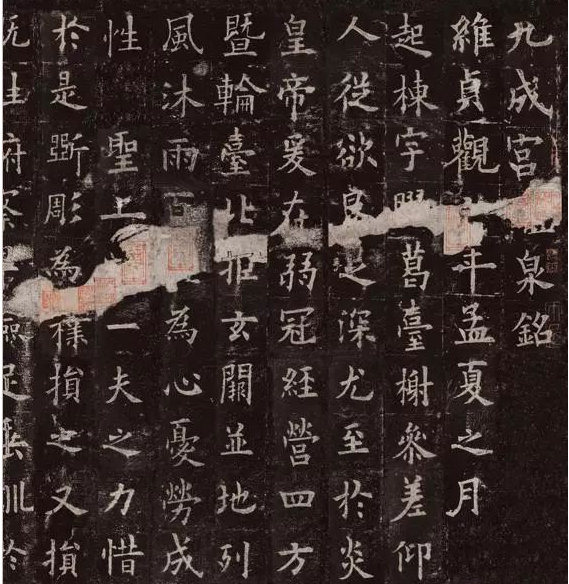 九成宮泉銘
維貞觀年孟夏之月
起棟宇葛臺榭參差仰
人從欲良足深尤至於炎
皇帝爰在弱冠經營四方
暨輪臺北拒玄闕並地列
風沐雨百為心憂勞成
性聖上一夫之力惜
於是斲彫為樸損之又損